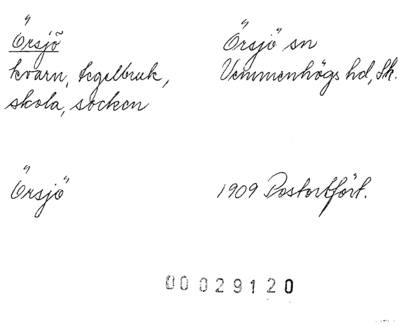 Örsjö
kvarn, tegelbruk,
skola, socken
Örsjö sn
Vemmenhögs hd, Sk.
Örsjö
1909 Postortfört.
00029120